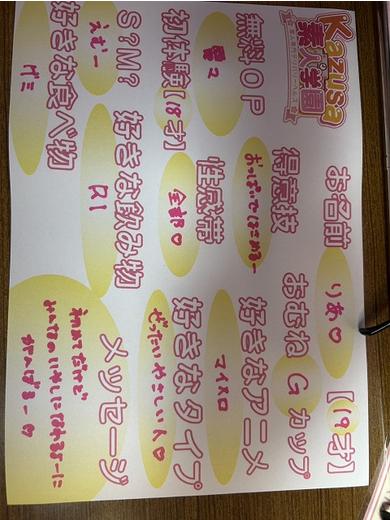 Kazusa
素人学園
お名前 りあ♡ 【19才】
おむね G カップ
無料OP
得意技 おっぱいではさめるー
好きなアニメ マイメロ
初体験【18才】
性感帯 全部♡
好きなタイプ ぜったいやさしい人♡
S?M? えむー
好きな飲み物
好きな食べ物 グミ
メッセージ
初めてだけど
がんばるー♡